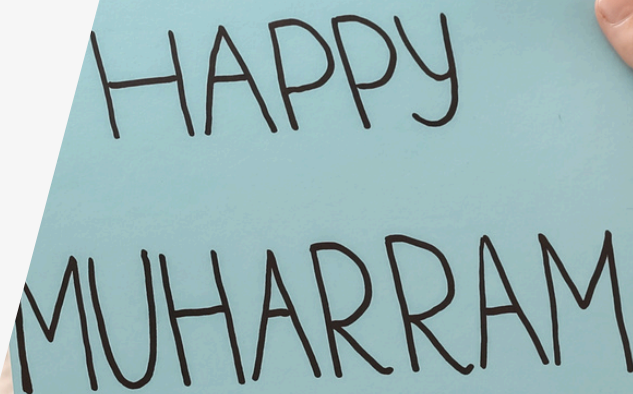 HAPPY
MUHARRAM